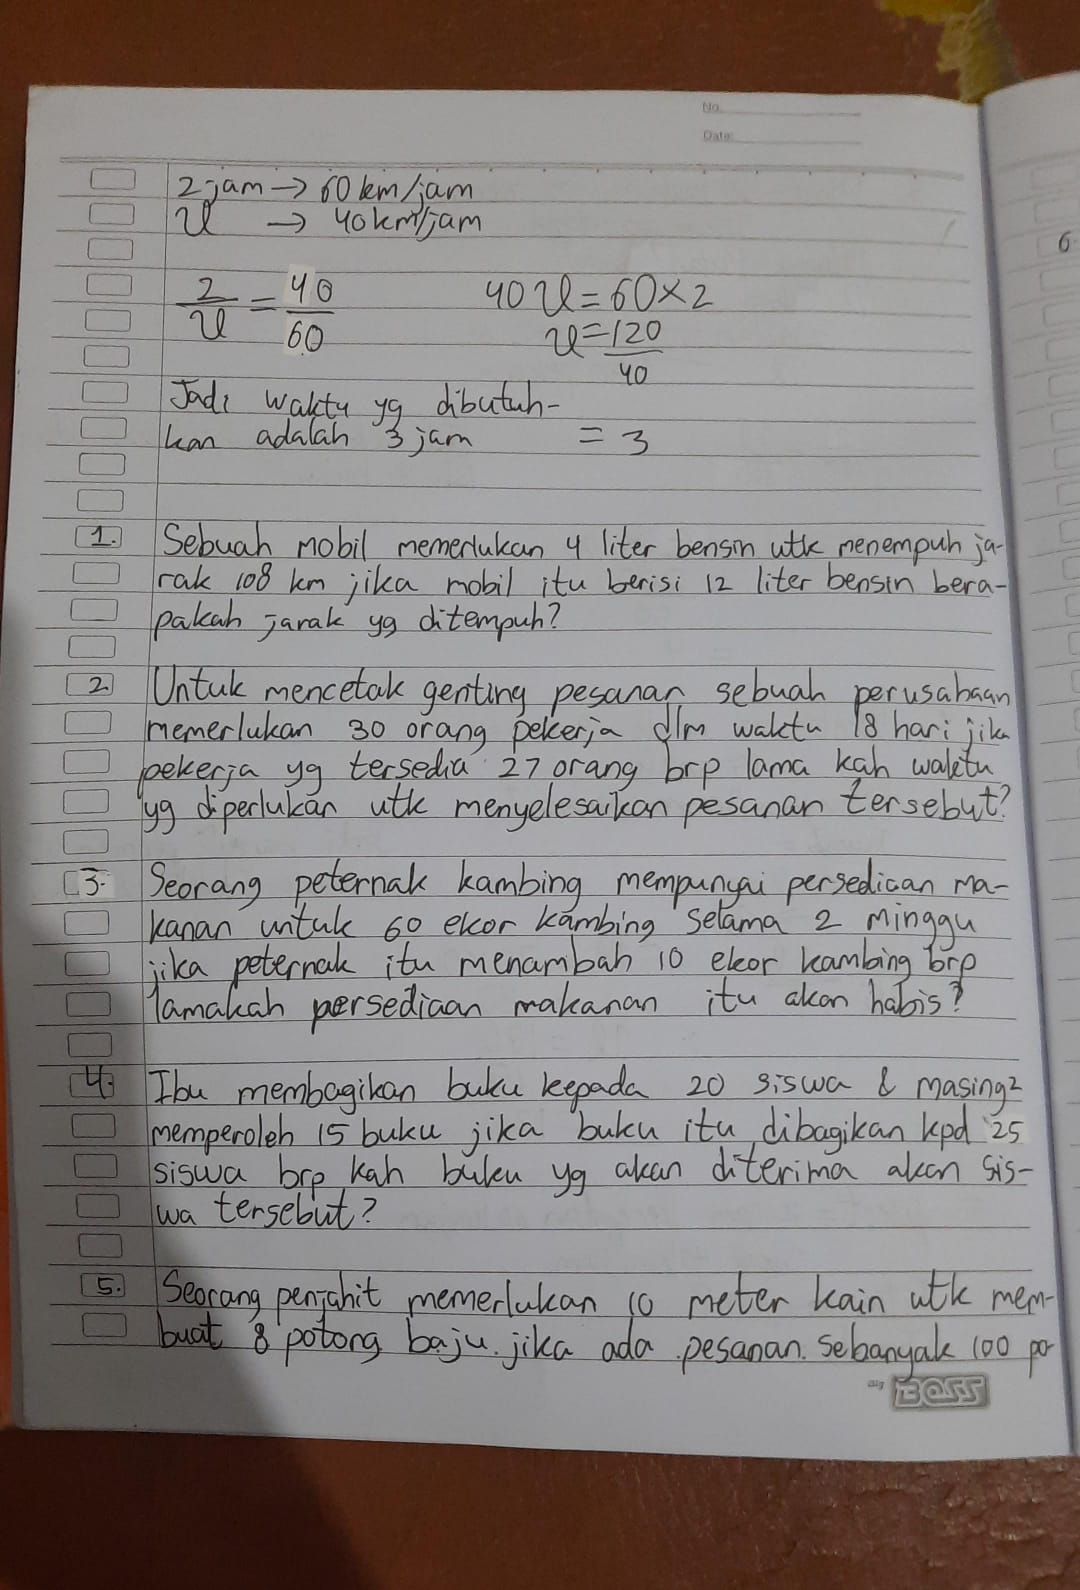 No.
Date:
2 jam → 60 km/jam
u → 40 km/jam
2/u = 40/60
40 u = 60 × 2
u = 120/40
Jadi waktu yg dibutuh-
kan adalah 3 jam = 3
1. Sebuah mobil memerlukan 4 liter bensin utk menempuh ja-
rak 108 km jika mobil itu berisi 12 liter bensin bera-
pakah jarak yg ditempuh?
2. Untuk mencetak genting pesanan sebuah perusahaan
memerlukan 30 orang pekerja dlm waktu 18 hari jika
pekerja yg tersedia 27 orang brp lama kah waktu
yg diperlukan utk menyelesaikan pesanan tersebut?
3. Seorang peternak kambing mempunyai persediaan ma-
kanan untuk 60 ekor kambing selama 2 minggu
jika peternak itu menambah 10 ekor kambing brp
lamakah persediaan makanan itu akan habis?
4. Ibu membagikan buku kepada 20 siswa & masing²
memperoleh 15 buku jika buku itu dibagikan kpd 25
siswa brp kah buku yg akan diterima akan sis-
wa tersebut?
5. Seorang penjahit memerlukan 10 meter kain utk mem-
buat 8 potong baju. jika ada pesanan sebanyak 100 po-
Big BOSS
6